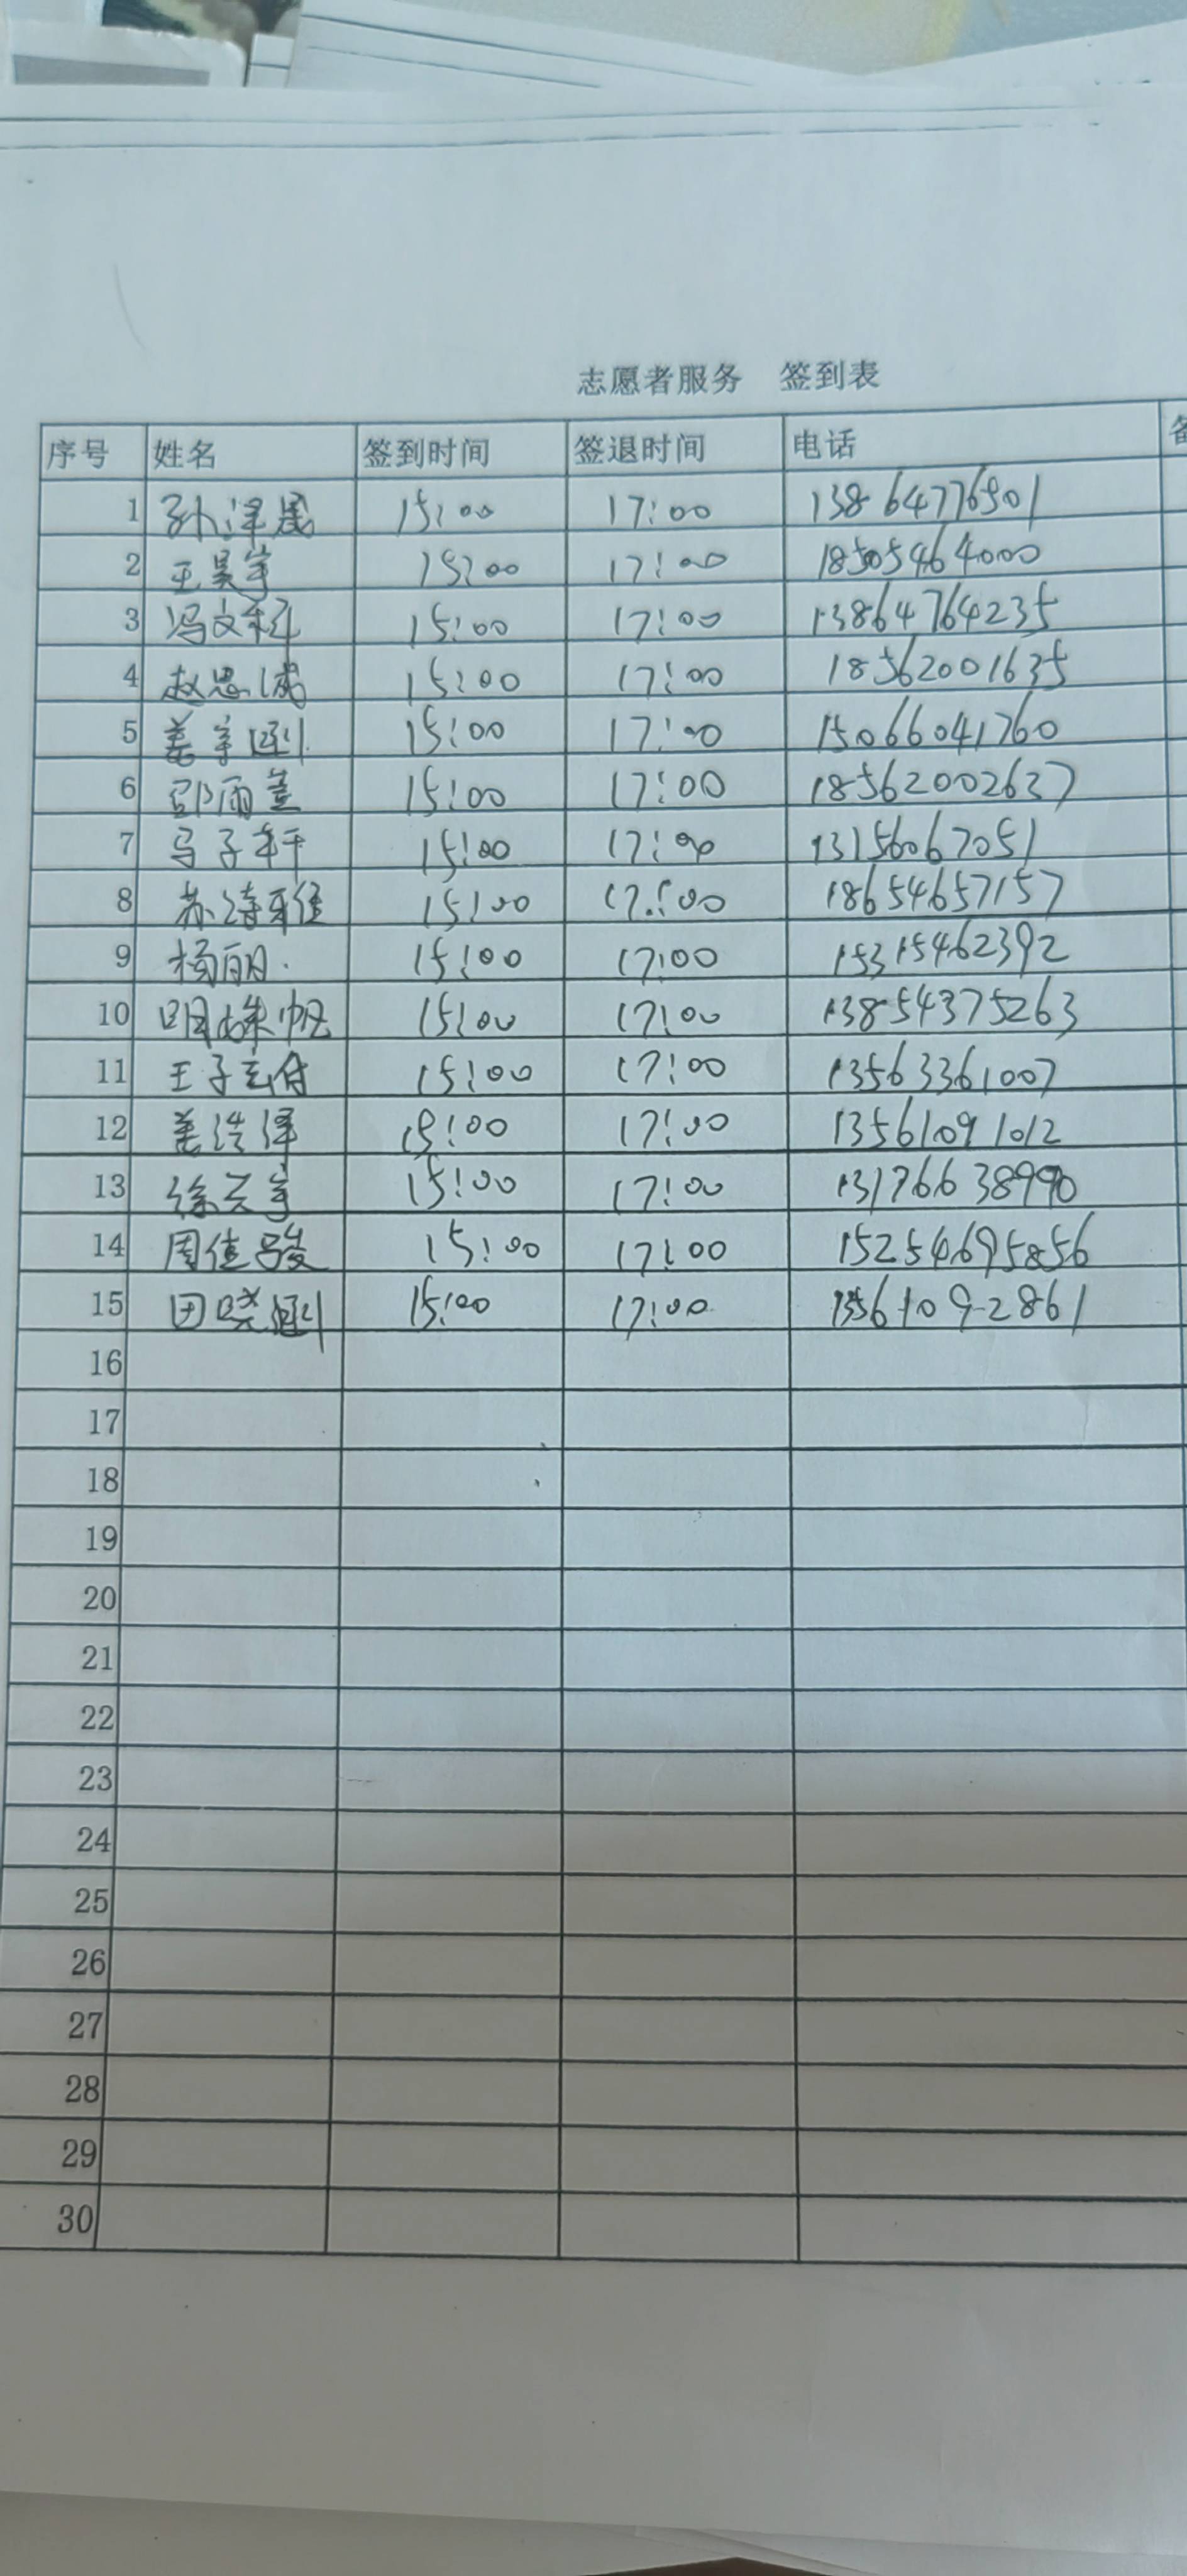 志愿者服务 签到表
序号 姓名 签到时间 签退时间 电话
1 孙泽晟 15:00 17:00 13864776501
2 王昊宇 15:00 17:00 18505464000
3 冯文彩 15:00 17:00 13864764235
4 赵思诚 15:00 17:00 18562001635
5 姜宇涵 15:00 17:00 15066041760
6 邵雨萱 15:00 17:00 18562002637
7 马子轩 15:00 17:00 13156067051
8 苏诗雅 15:00 17:00 18654657157
9 杨丽 15:00 17:00 15315462392
10 明姝帆 15:00 17:00 13854375263
11 王子 15:00 17:00 13563361007
12 姜浩泽 15:00 17:00 13561091012
13 徐天宇 15:00 17:00 13176638990
14 周佳骏 15:00 17:00 15254695856
15 田晓涵 15:00 17:00 13561092861
16
17
18
19
20
21
22
23
24
25
26
27
28
29
30